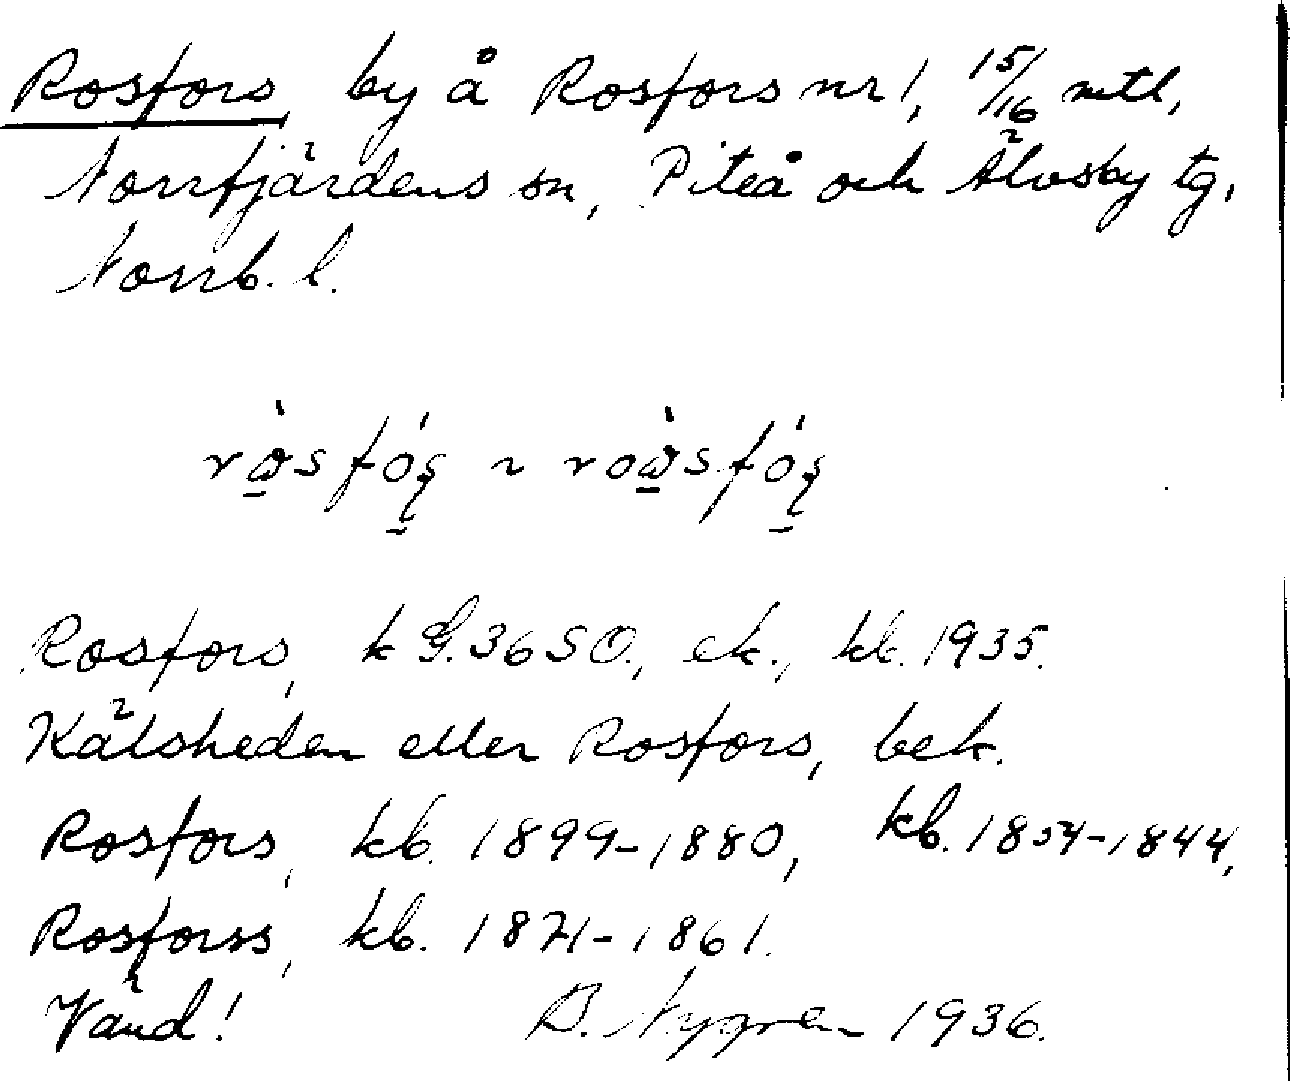 Rosfors, by å Rosfors nr 1, 15/16 mtl,
Norrfjärdens sn, Piteå och Älvsby tg,
Norrb. l.
Rosfors, k G. 3650, ek., kb. 1935.
Kälsheden eller Rosfors, bek.
Rosfors, kb. 1899-1880, kb. 1854-1844,
Rosforss, kb. 1871-1861.
Vänd! B. Nygren 1936.